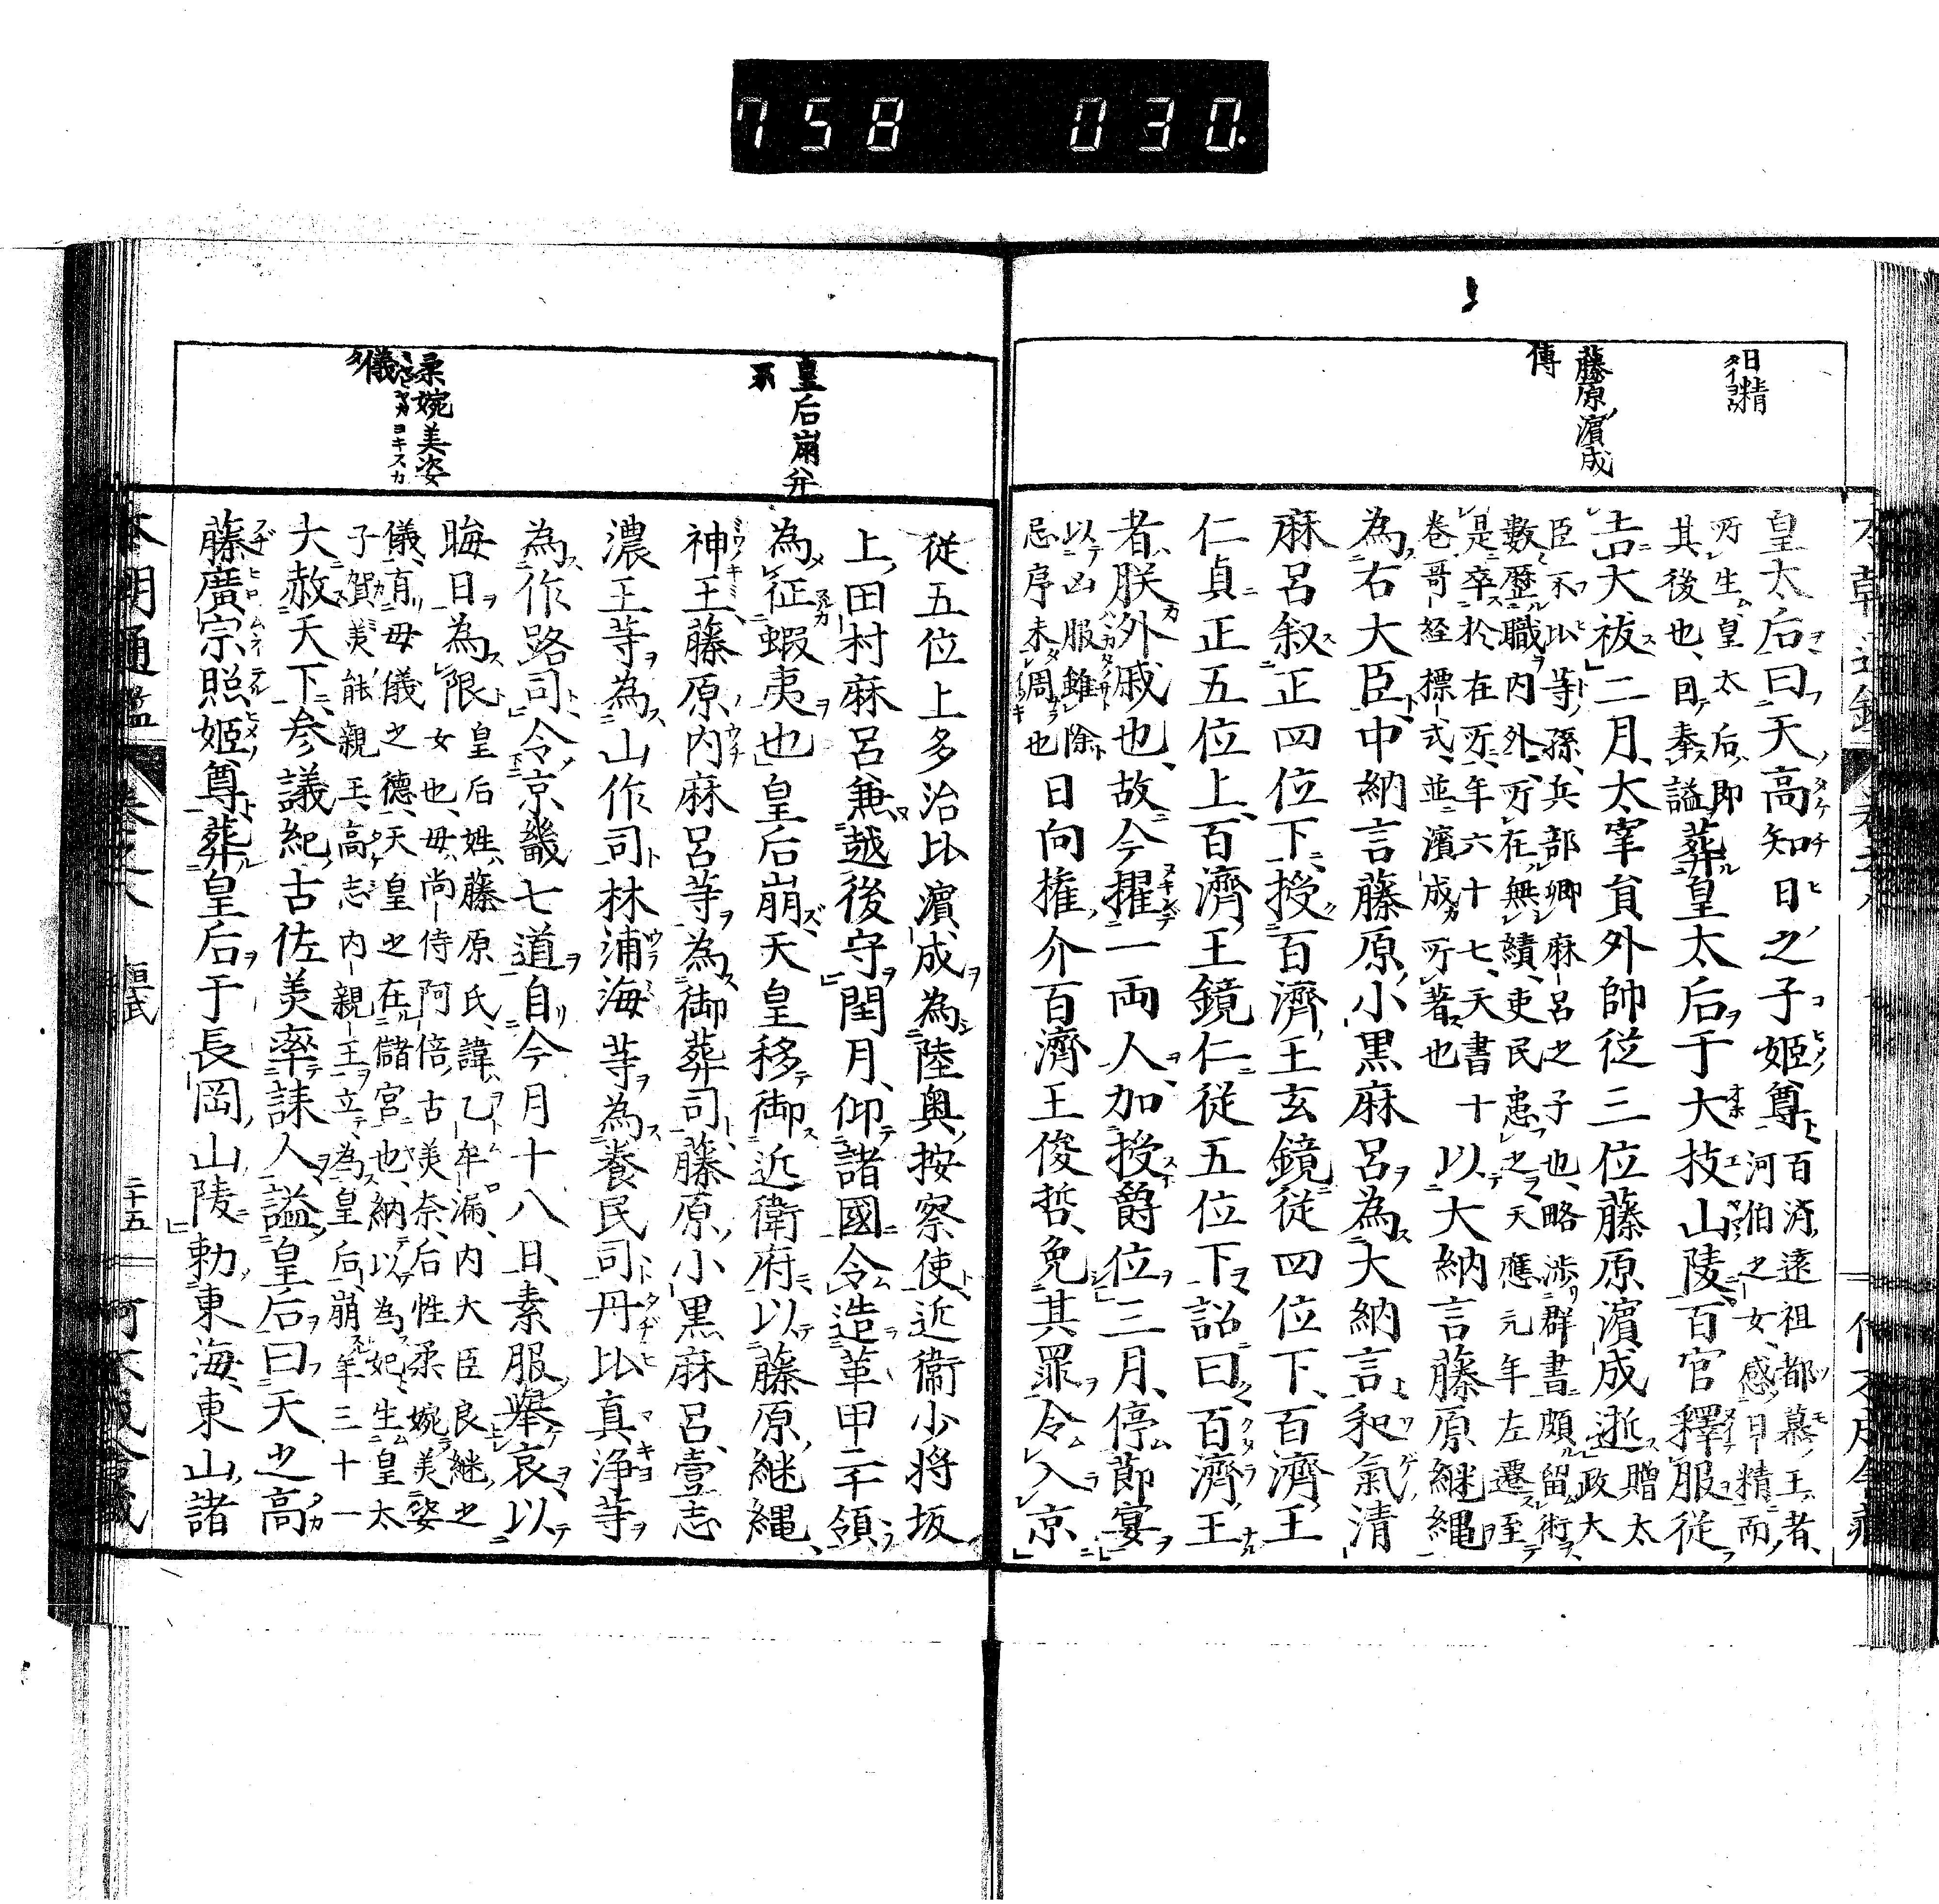 758 030.
日精
藤原濵成
傳
皇太后曰天高知日之子姫尊百済遠祖都慕王者、河伯之女、感日精而
所生、皇太后、即其後也、因奏謚葬皇太后于大枝山陵百官釋服従
吉大祓二月、太宰貟外帥従三位藤原濵成逝贈太政大
臣不比等孫、兵部卿麻呂之子也、略渉群書頗留術
數歴職内外、所在無績、吏民患之天應元年左遷至
是卒於在所、年六十七、天書十
卷哥経標式、並濵成所著也
以大納言藤原継縄
為右大臣、中納言藤原小黒麻呂為大納言、和氣清
麻呂叙正四位下、授百濟王玄鏡従四位下、百濟王
仁貞正五位上、百濟王鏡仁従五位下詔曰百濟王
者、朕外戚也、故今擢一両人加授爵位三月、停節宴
以凶服雖除
忌序未周也
日向権介百濟王俊哲、免其罪令入京
皇后崩并
柔婉美姿
儀
従五位上多治比濵成為陸奥按察使、近衛少将坂
上田村麻呂兼越後守閏月、仰諸國令造革甲二千領
為征蝦夷也皇后崩天皇移御近衛府以藤原継縄、
神王、藤原内麻呂等為御葬司、藤原小黒麻呂、壹志
濃王等為山作司林浦海等為養民司丹比真浄等
為作路司令京畿七道自今月十八日、素服擧哀、以
晦日為限
皇后姓藤原氏、諱乙牟漏、内大臣良継之
女也、母尚侍阿倍古美奈、后性柔婉美姿
儀、有母儀之德、天皇之在儲宮也、納以為妃、生皇太
子賀美能親王、高志内親王立為皇后、崩年三十一
大赦天下、参議紀古佐美率誄人謚皇后曰天之高
藤廣宗照姫尊葬皇后于長岡山陵勅東海、東山、諸
桓武
二十五